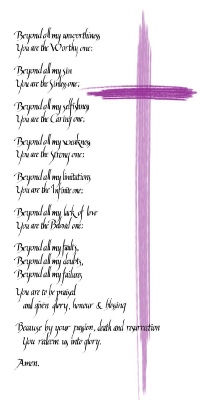 Beyond all my unworthiness
You are the Worthy one;
Beyond all my sin
You are the Sinless one;
Beyond all my selfishness
You are the Caring one;
Beyond all my weakness
You are the Strong one;
Beyond all my limitations
You are the Infinite one;
Beyond all my lack of love
You are the Beloved one;
Beyond all my faults,
Beyond all my doubts,
Beyond all my failures,
You are to be praised
and given glory, honour & blessing
Because by your passion, death and resurrection
You redeem us, into glory.
Amen.